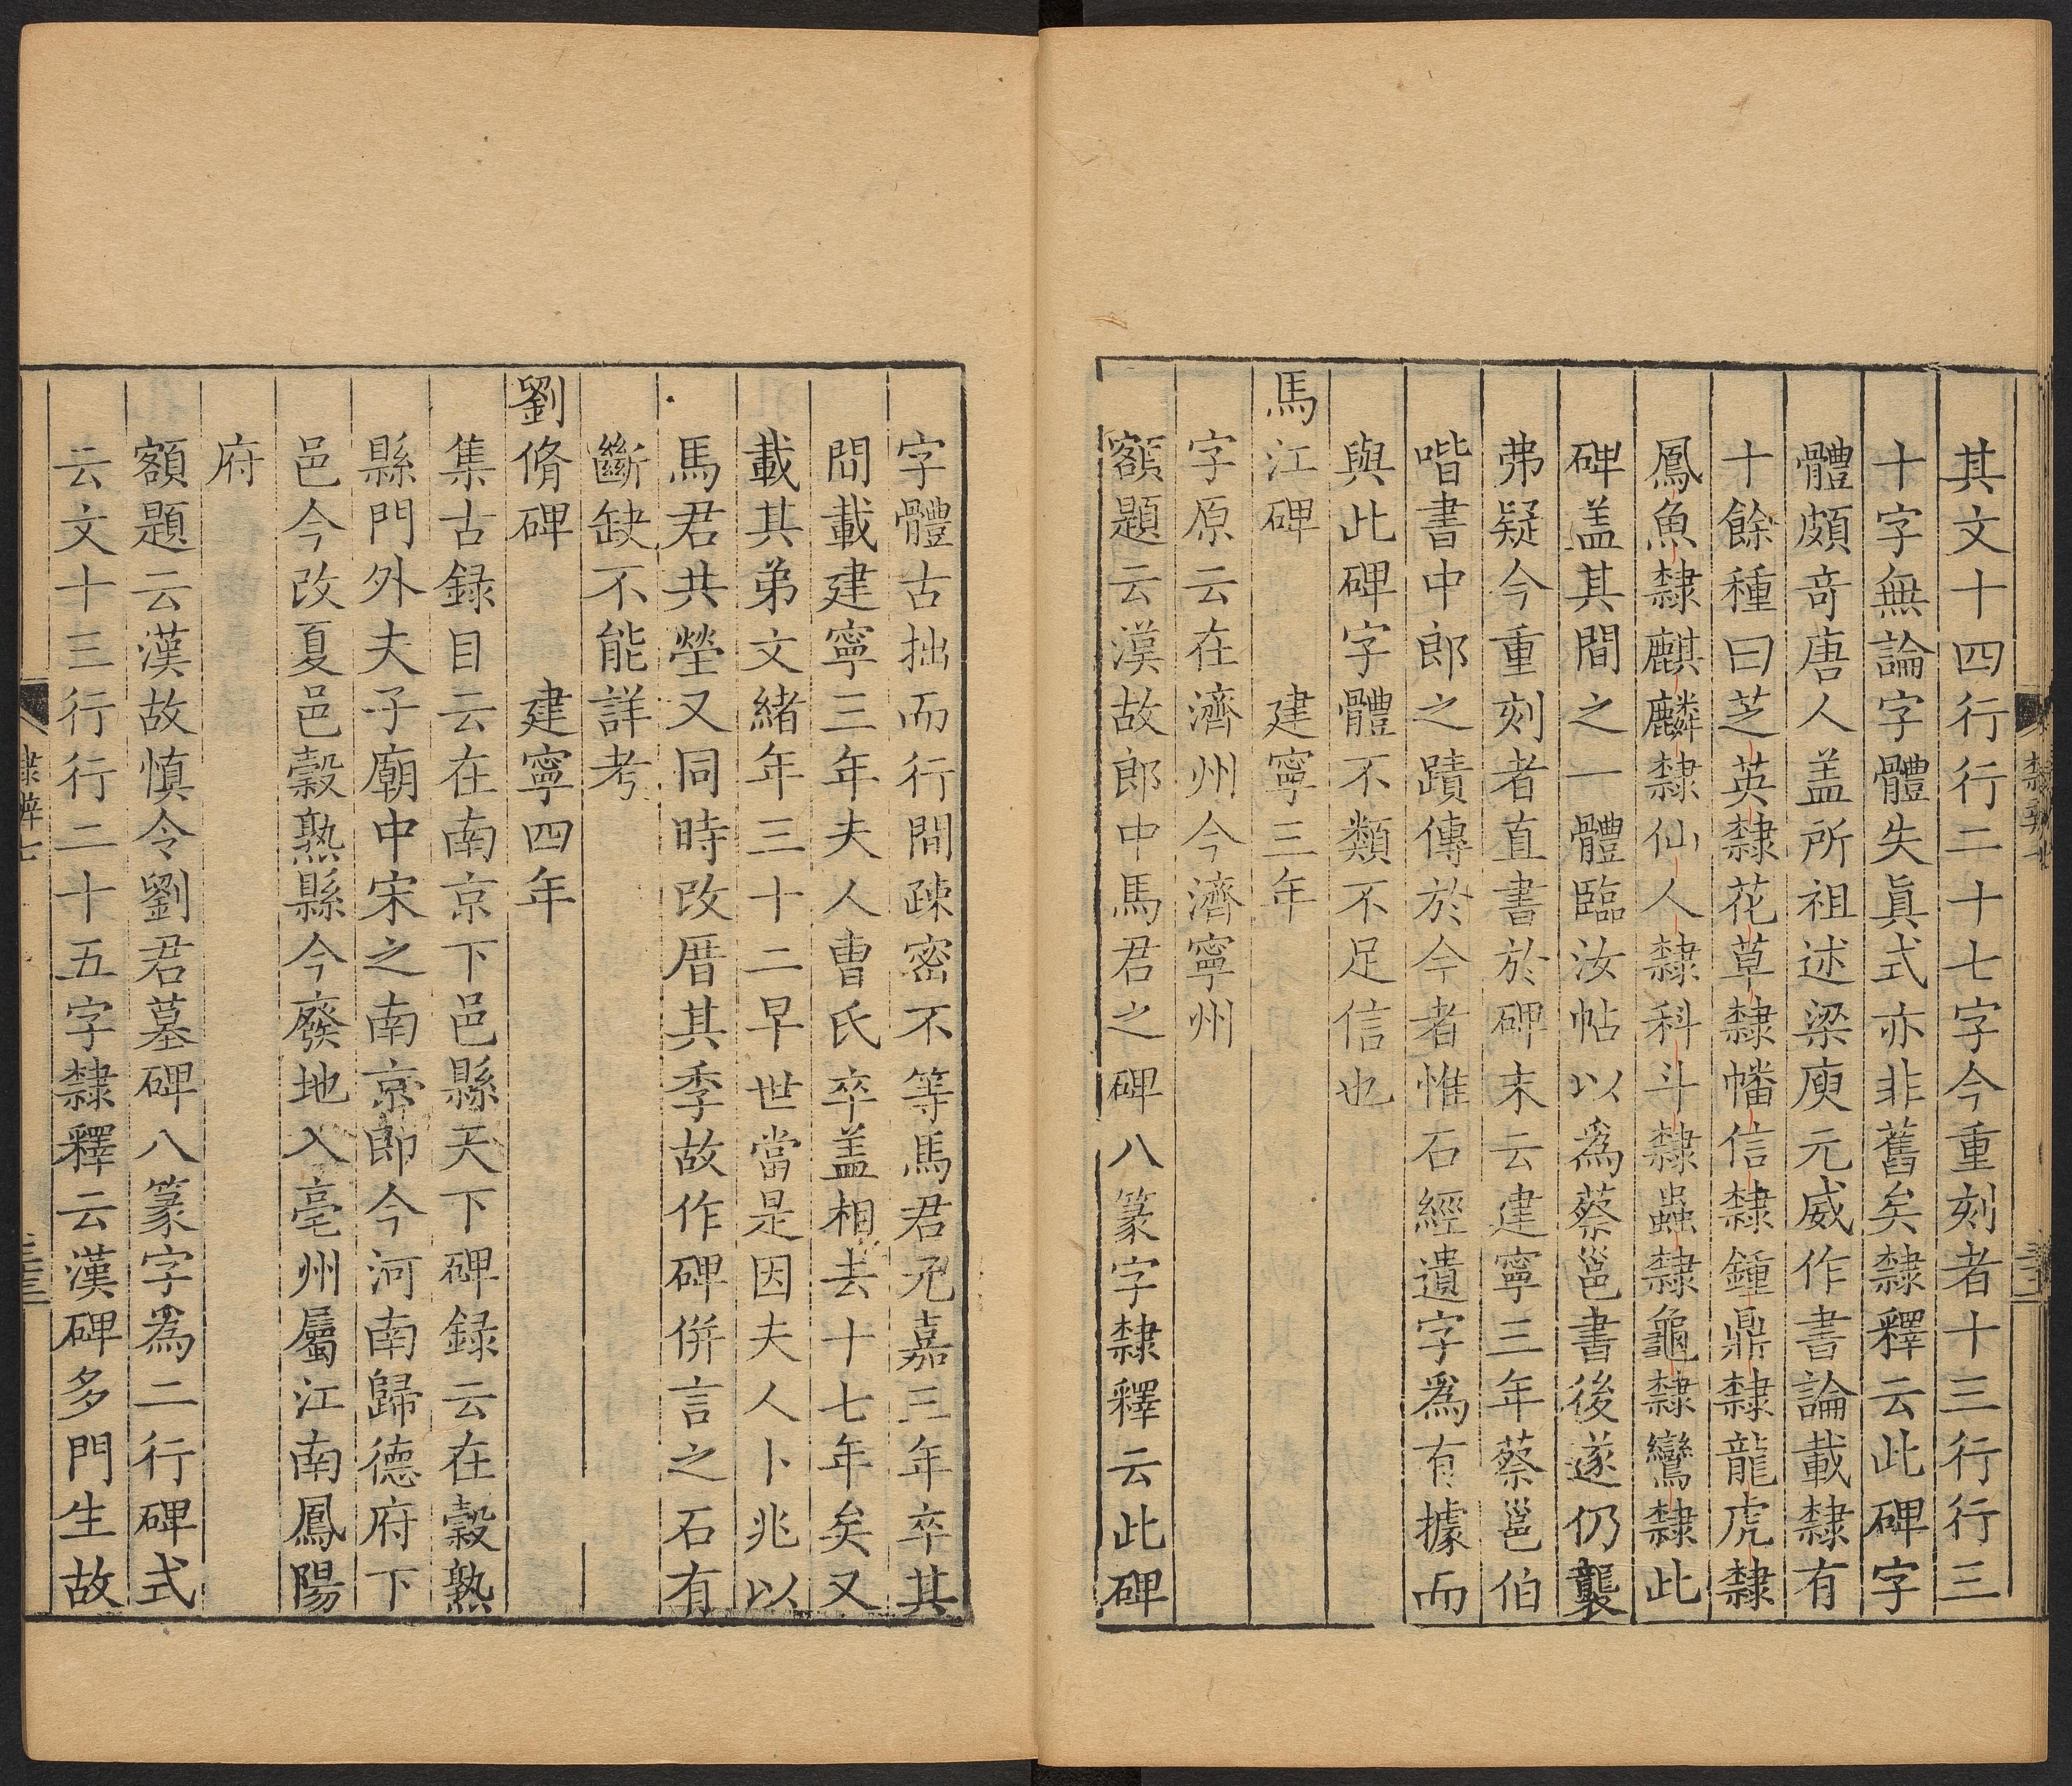 其文十四行行二十七字今重刻者十三行行三
十字無論字體失眞式亦非舊矣隸釋云此碑字
體頗竒唐人盖所祖述梁庾元威作書論載隸有
十餘種曰芝英隸花草隸幡信隸鍾鼎隸龍虎隸
鳳魚隸麒麟隸仙人隸科斗隸蟲隸龜隸鸞隸此
碑盖其間之一體臨汝帖以爲蔡邕書後遂仍襲
弗疑今重刻者直書於碑末云建寧三年蔡邕伯
喈書中郎之蹟傳於今者惟石經遺字爲有據而
與此碑字體不類不足信也
馬江碑 建寧三年
字原云在濟州今濟寧州
額題云漢故郎中馬君之碑八篆字隸釋云此碑
字體古拙而行間疎密不等馬君元嘉三年卒其
間載建寧三年夫人曹氏卒盖相去十七年矣又
載其弟文緒年三十二早世當是因夫人卜兆以
馬君共塋又同時改厝其季故作碑併言之石有
斷缺不能詳考
劉脩碑 建寧四年
集古録目云在南京下邑縣天下碑録云在穀熟
縣門外夫子廟中宋之南京即今河南歸德府下
邑今改夏邑穀熟縣今廢地入亳州屬江南鳳陽
府
額題云漢故慎令劉君墓碑八篆字為二行碑式
云文十三行行二十五字隸釋云漢碑多門生故
隸辨七